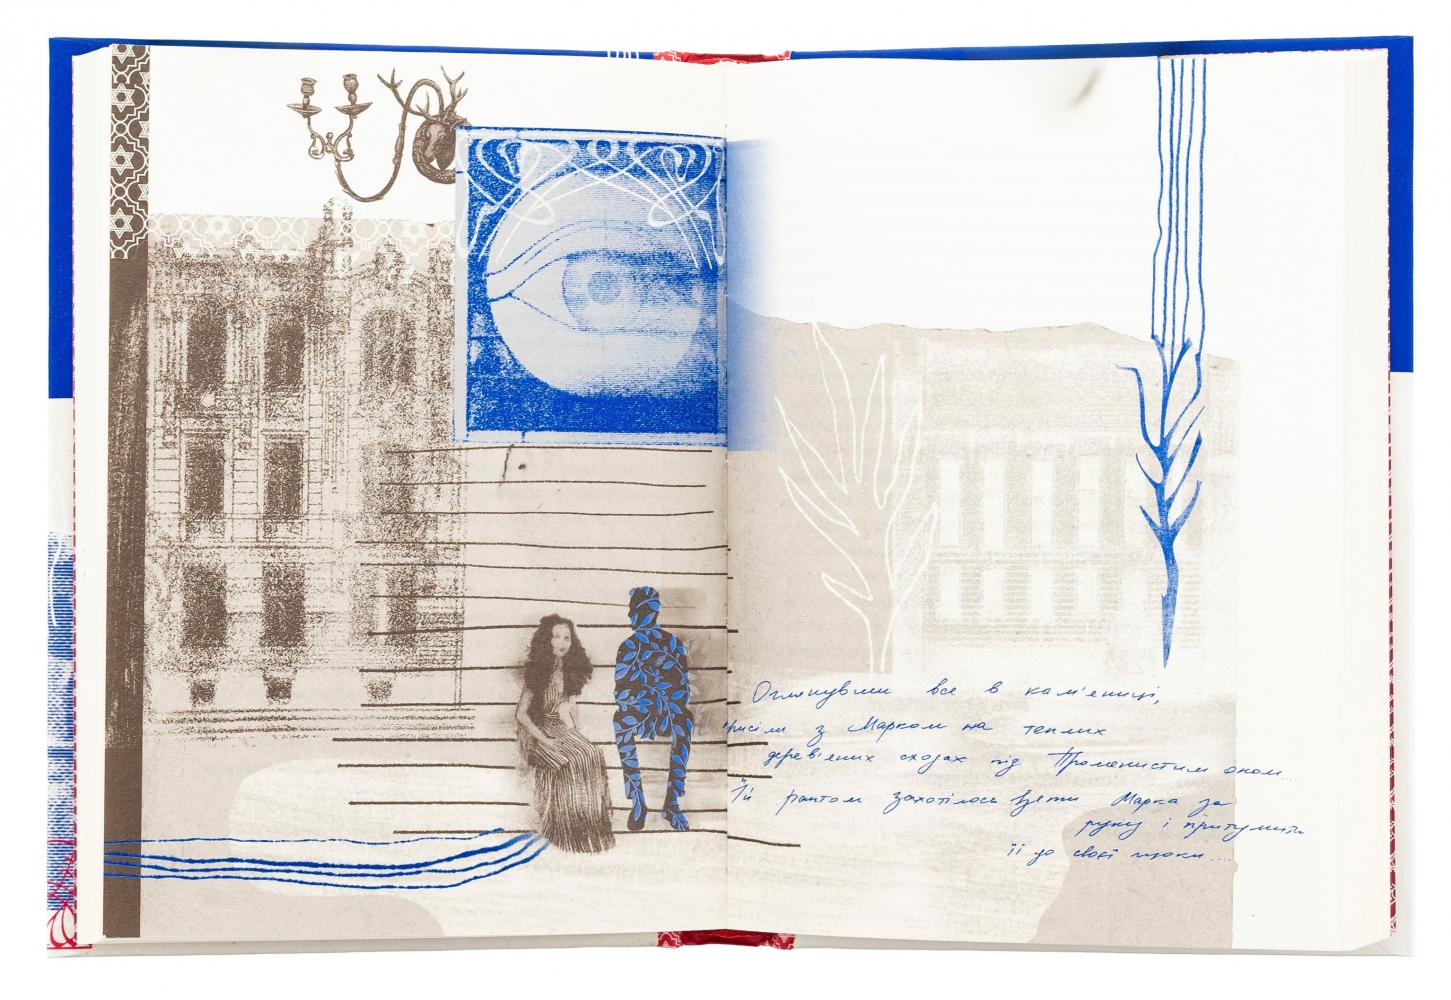 Оглянувши все в кам'яниці,
присіли з Марком на теплих
дерев'яних сходах під Променистим оком...
Їй раптом захотілось взяти Марка за
руку і притулити
її до своєї щоки....